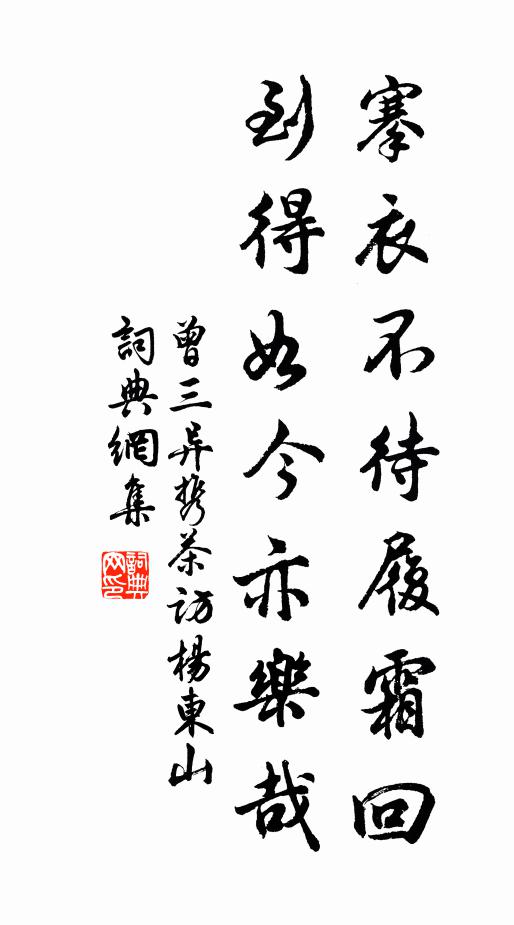 搴衣不待履霜回
到得如今亦樂哉
曾三异携茶访楊東山
詞典網集
詞典网印